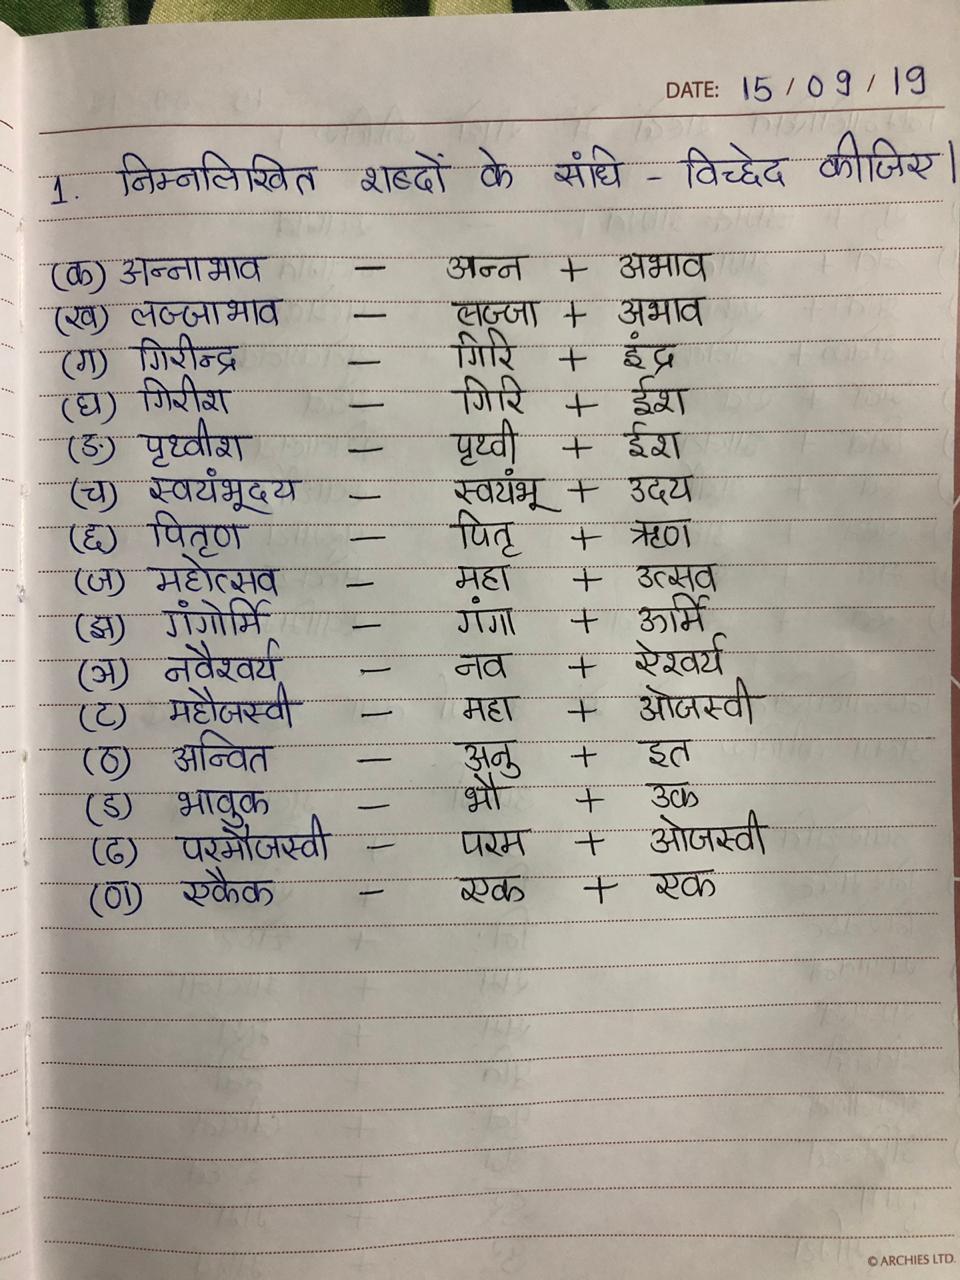 DATE: 15 / 09 / 19
1. निम्नलिखित शब्दों के संधि - विच्छेद कीजिए।
(क) अन्नाभाव — अन्न + अभाव
(ख) लज्जाभाव — लज्जा + अभाव
(ग) गिरीन्द्र — गिरि + इंद्र
(घ) गिरीश — गिरि + ईश
(ङ) पृथ्वीश — पृथ्वी + ईश
(च) स्वयंभूदय — स्वयंभू + उदय
(छ) पितृण — पितृ + ऋण
(ज) महोत्सव — महा + उत्सव
(झ) गंगोर्मि — गंगा + ऊर्मि
(ञ) नवैश्वर्य — नव + ऐश्वर्य
(ट) महौजस्वी — महा + ओजस्वी
(ठ) अन्वित — अनु + इत
(ड) भावुक — भौ + उक
(ढ) परमौजस्वी — परम + ओजस्वी
(ण) एकैक — एक + एक
© ARCHIES LTD.